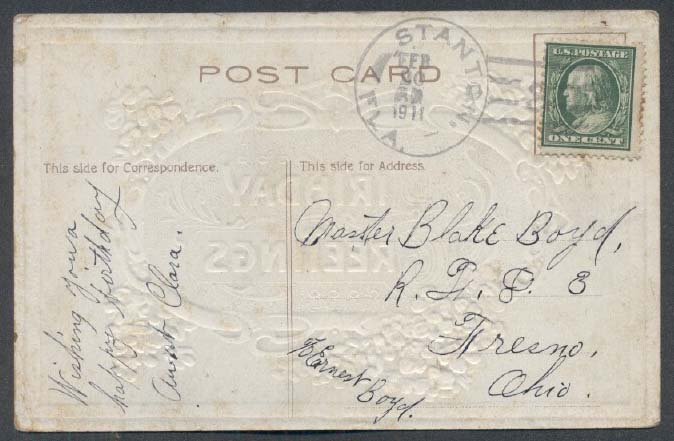 POST CARD
STANTON,
FEB
1911
U.S. POSTAGE
ONE CENT
This side for Correspondence.
This side for Address.
Wishing you a
happy birthday
Aunt Clara.
Master Blake Boyd,
R. F. D. 3
Fresno,
Ohio.
Ernest
Boyd.
BIRTHDAY
GREETINGS